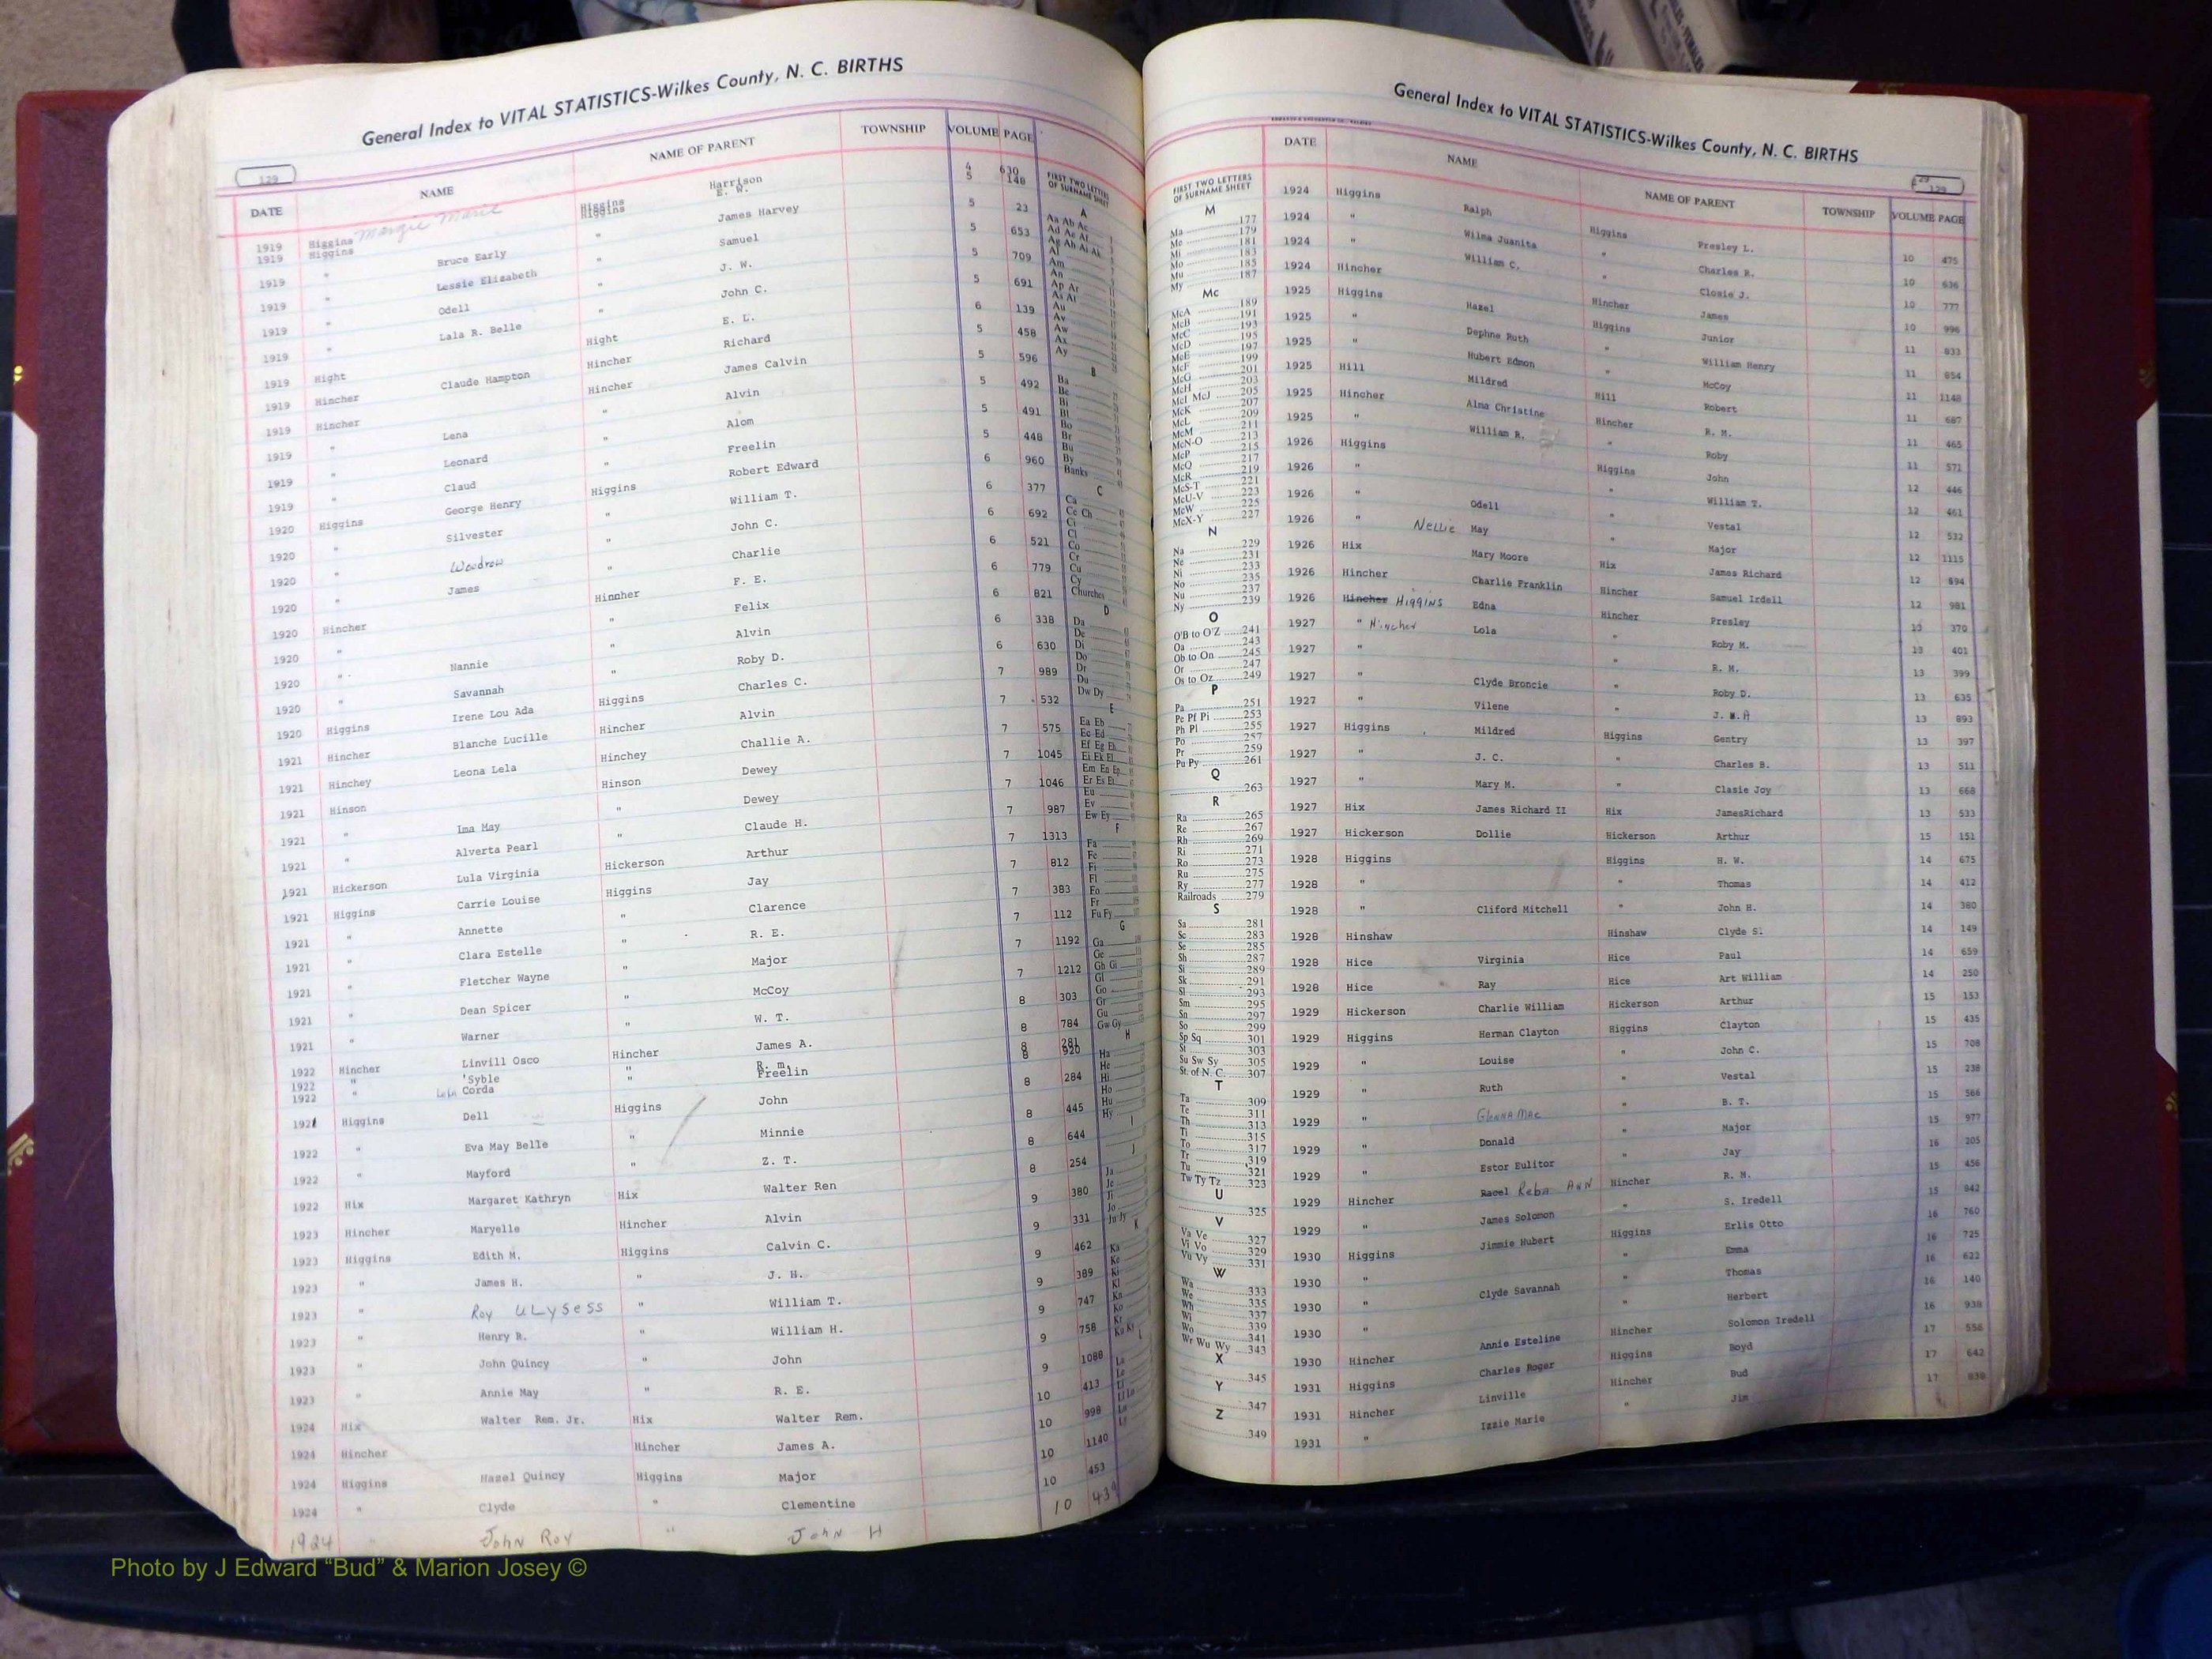 General Index to VITAL STATISTICS-Wilkes County, N. C. BIRTHS
129
DATE NAME NAME OF PARENT TOWNSHIP VOLUME PAGE
1919 Higgins Margie Marie Higgins Harrison 4 630
1919 Higgins Higgins E. W. 5 148
1919 " Bruce Early " James Harvey 5 23
1919 " Lessie Elizabeth " Samuel 5 653
1919 " Odell " J. W. 5 709
1919 " Lala R. Belle " John C. 5 691
1919 Hight Hight E. L. 6 139
1919 Hincher Claude Hampton Hincher Richard 5 458
1919 Hincher Hincher James Calvin 5 596
1919 " Lena " Alvin 5 492
1919 " Leonard " Alom 5 491
1919 " Claud " Freelin 5 448
1920 Higgins George Henry Higgins Robert Edward 6 960
1920 " Silvester " William T. 6 377
1920 " Woodrow " John C. 6 692
1920 " James " Charlie 6 521
1920 Hincher Hinnher F. E. 6 779
1920 " " Felix 6 821
1920 " Nannie " Alvin 6 338
1920 " Savannah " Roby D. 6 630
1920 Higgins Irene Lou Ada Higgins Charles C. 7 989
1921 Hincher Blanche Lucille Hincher Alvin 7 532
1921 Hinchey Leona Lela Hinchey Challie A. 7 575
1921 Hinson Hinson Dewey 7 1045
1921 " Ima May " Dewey 7 1046
1921 " Alverta Pearl " Claude H. 7 987
1921 Hickerson Lula Virginia Hickerson Arthur 7 1313
1921 Higgins Carrie Louise Higgins Jay 7 812
1921 " Annette " Clarence 7 383
1921 " Clara Estelle " R. E. 7 112
1921 " Fletcher Wayne " Major 7 1192
1921 " Dean Spicer " McCoy 7 1212
1921 " Warner " W. T. 8 303
1922 Hincher Linvill Osco Hincher James A. 8 784
1922 " 'Syble " R. m. 8 281
1922 " Lela Corda " Freelin 8 920
1921 Higgins Dell Higgins John 8 284
1922 " Eva May Belle " Minnie 8 445
1922 " Mayford " Z. T. 8 644
1922 Hix Margaret Kathryn Hix Walter Ren 8 254
1923 Hincher Maryelle Hincher Alvin 9 380
1923 Higgins Edith M. Higgins Calvin C. 9 331
1923 " James H. " J. H. 9 462
1923 " Roy ULysess " William T. 9 389
1923 " Henry R. " William H. 9 747
1923 " John Quincy " John 9 758
1923 " Annie May " R. E. 9 1088
1924 Hix Walter Rem. Jr. Hix Walter Rem. 10 413
1924 Hincher Hincher James A. 10 998
1924 Higgins Hazel Quincy Higgins Major 10 1140
1924 " Clyde " Clementine 10 453
1924 " John Roy " John H 10 439
FIRST TWO LETTERS
OF SURNAME SHEET
A
Aa Ab Ac
Ad Ae Af
Ag Ah Ai Ak
Al
Am
An
Ap Ar
As At
Au
Av
Aw
Ax
Ay
B
Ba
Be
Bi
Bl
Bo
Br
Bu
By
Banks
C
Ca
Ce Ch
Ci
Cl
Co
Cr
Cu
Cy
Churches
D
Da
De
Di
Do
Dr
Du
Dw Dy
E
Ea Eb
Ec Ed
Ef Eg Eh
Ei Ek El
Em En Ep
Er Es Et
Eu
Ev
Ew Ey
F
Fa
Fe
Fi
Fl
Fo
Fr
Fu Fy
G
Ga
Ge
Gh Gi
Gl
Go
Gr
Gu
Gw Gy
H
Ha
He
Hi
Ho
Hu
Hy
I
J
Ja
Je
Ji
Jo
Ju Jy
K
Ka
Ke
Ki
Kl
Kn
Ko
Kr
Ku Ky
L
La
Le
Li
Ll Lo
Lu
Ly
General Index to VITAL STATISTICS-Wilkes County, N. C. BIRTHS
129
FIRST TWO LETTERS
OF SURNAME SHEET
M
Ma 177
Me 179
Mi 181
Mo 183
Mu 185
My 187
Mc
McA 189
McB 191
McC 193
McD 195
McE 197
McF 199
McG 201
McH 203
McI McJ 205
McK 207
McL 209
McM 211
McN-O 213
McP 215
McQ 217
McR 219
McS-T 221
McU-V 223
McW 225
McX-Y 227
N
Na 229
Ne 231
Ni 233
No 235
Nu 237
Ny 239
O
O'B to O'Z 241
Oa 243
Ob to On 245
Or 247
Os to Oz 249
P
Pa 251
Pe Pf Pi 253
Ph Pl 255
Po 257
Pr 259
Pu Py 261
Q
263
R
Ra 265
Re 267
Rh 269
Ri 271
Ro 273
Ru 275
Ry 277
Railroads 279
S
Sa 281
Sc 283
Se 285
Sh 287
Si 289
Sk 291
Sl 293
Sm 295
Sn 297
So 299
Sp Sq 301
St 303
Su Sw Sy 305
St. of N. C. 307
T
Ta 309
Te 311
Th 313
Ti 315
To 317
Tr 319
Tu 321
Tw Ty Tz 323
U
325
V
Va Ve 327
Vi Vo 329
Vu Vy 331
W
Wa 333
We 335
Wh 337
Wi 339
Wo 341
Wr Wu Wy 343
X
345
Y
347
Z
349
DATE NAME NAME OF PARENT TOWNSHIP VOLUME PAGE
1924 Higgins Ralph Higgins Presley L. 10 475
1924 " Wilma Juanita " Charles R. 10 636
1924 " William C. " Closie J. 10 777
1924 Hincher Hincher James 10 996
1925 Higgins Hazel Higgins Junior 11 833
1925 " Dephne Ruth " William Henry 11 854
1925 " Hubert Edmon " McCoy 11 1148
1925 Hill Mildred Hill Robert 11 687
1925 Hincher Alma Christine Hincher R. M. 11 465
1925 " William R. " Roby 11 571
1926 Higgins Higgins John 12 446
1926 " " William T. 12 461
1926 " Odell " Vestal 12 532
1926 " Nellie May " Major 12 1115
1926 Hix Mary Moore Hix James Richard 12 894
1926 Hincher Charlie Franklin Hincher Samuel Irdell 12 981
1926 Hincher Higgins Edna Hincher Presley 13 370
1927 " Hincher Lola " Roby M. 13 401
1927 " " R. M. 13 399
1927 " Clyde Broncie " Roby D. 13 635
1927 " Vilene " J. M.H 13 893
1927 Higgins Mildred Higgins Gentry 13 397
1927 " J. C. " Charles B. 13 511
1927 " Mary M. " Clasie Joy 13 668
1927 Hix James Richard II Hix JamesRichard 13 533
1927 Hickerson Dollie Hickerson Arthur 15 151
1928 Higgins Higgins H. W. 14 675
1928 " " Thomas 14 412
1928 " Cliford Mitchell " John H. 14 380
1928 Hinshaw Hinshaw Clyde S. 14 149
1928 Hice Virginia Hice Paul 14 659
1928 Hice Ray Hice Art William 14 250
1929 Hickerson Charlie William Hickerson Arthur 15 153
1929 Higgins Herman Clayton Higgins Clayton 15 435
1929 " Louise " John C. 15 708
1929 " Ruth " Vestal 15 238
1929 " Glenna Mae " B. T. 15 566
1929 " Donald " Major 15 977
1929 " Estor Eulitor " Jay 16 205
1929 Hincher Racel Reba Ann Hincher R. M. 15 456
1929 " James Solomon " S. Iredell 15 942
1930 Higgins Jimmie Hubert Higgins Erlis Otto 16 760
1930 " " Emma 16 725
1930 " Clyde Savannah " Thomas 16 622
1930 " " Herbert 16 140
1930 Hincher Annie Esteline Hincher Solomon Iredell 16 938
1931 Higgins Charles Roger Higgins Boyd 17 556
1931 Hincher Linville Hincher Bud 17 642
1931 " Izzie Marie " Jim 17 839
Photo by J Edward “Bud” & Marion Josey ©